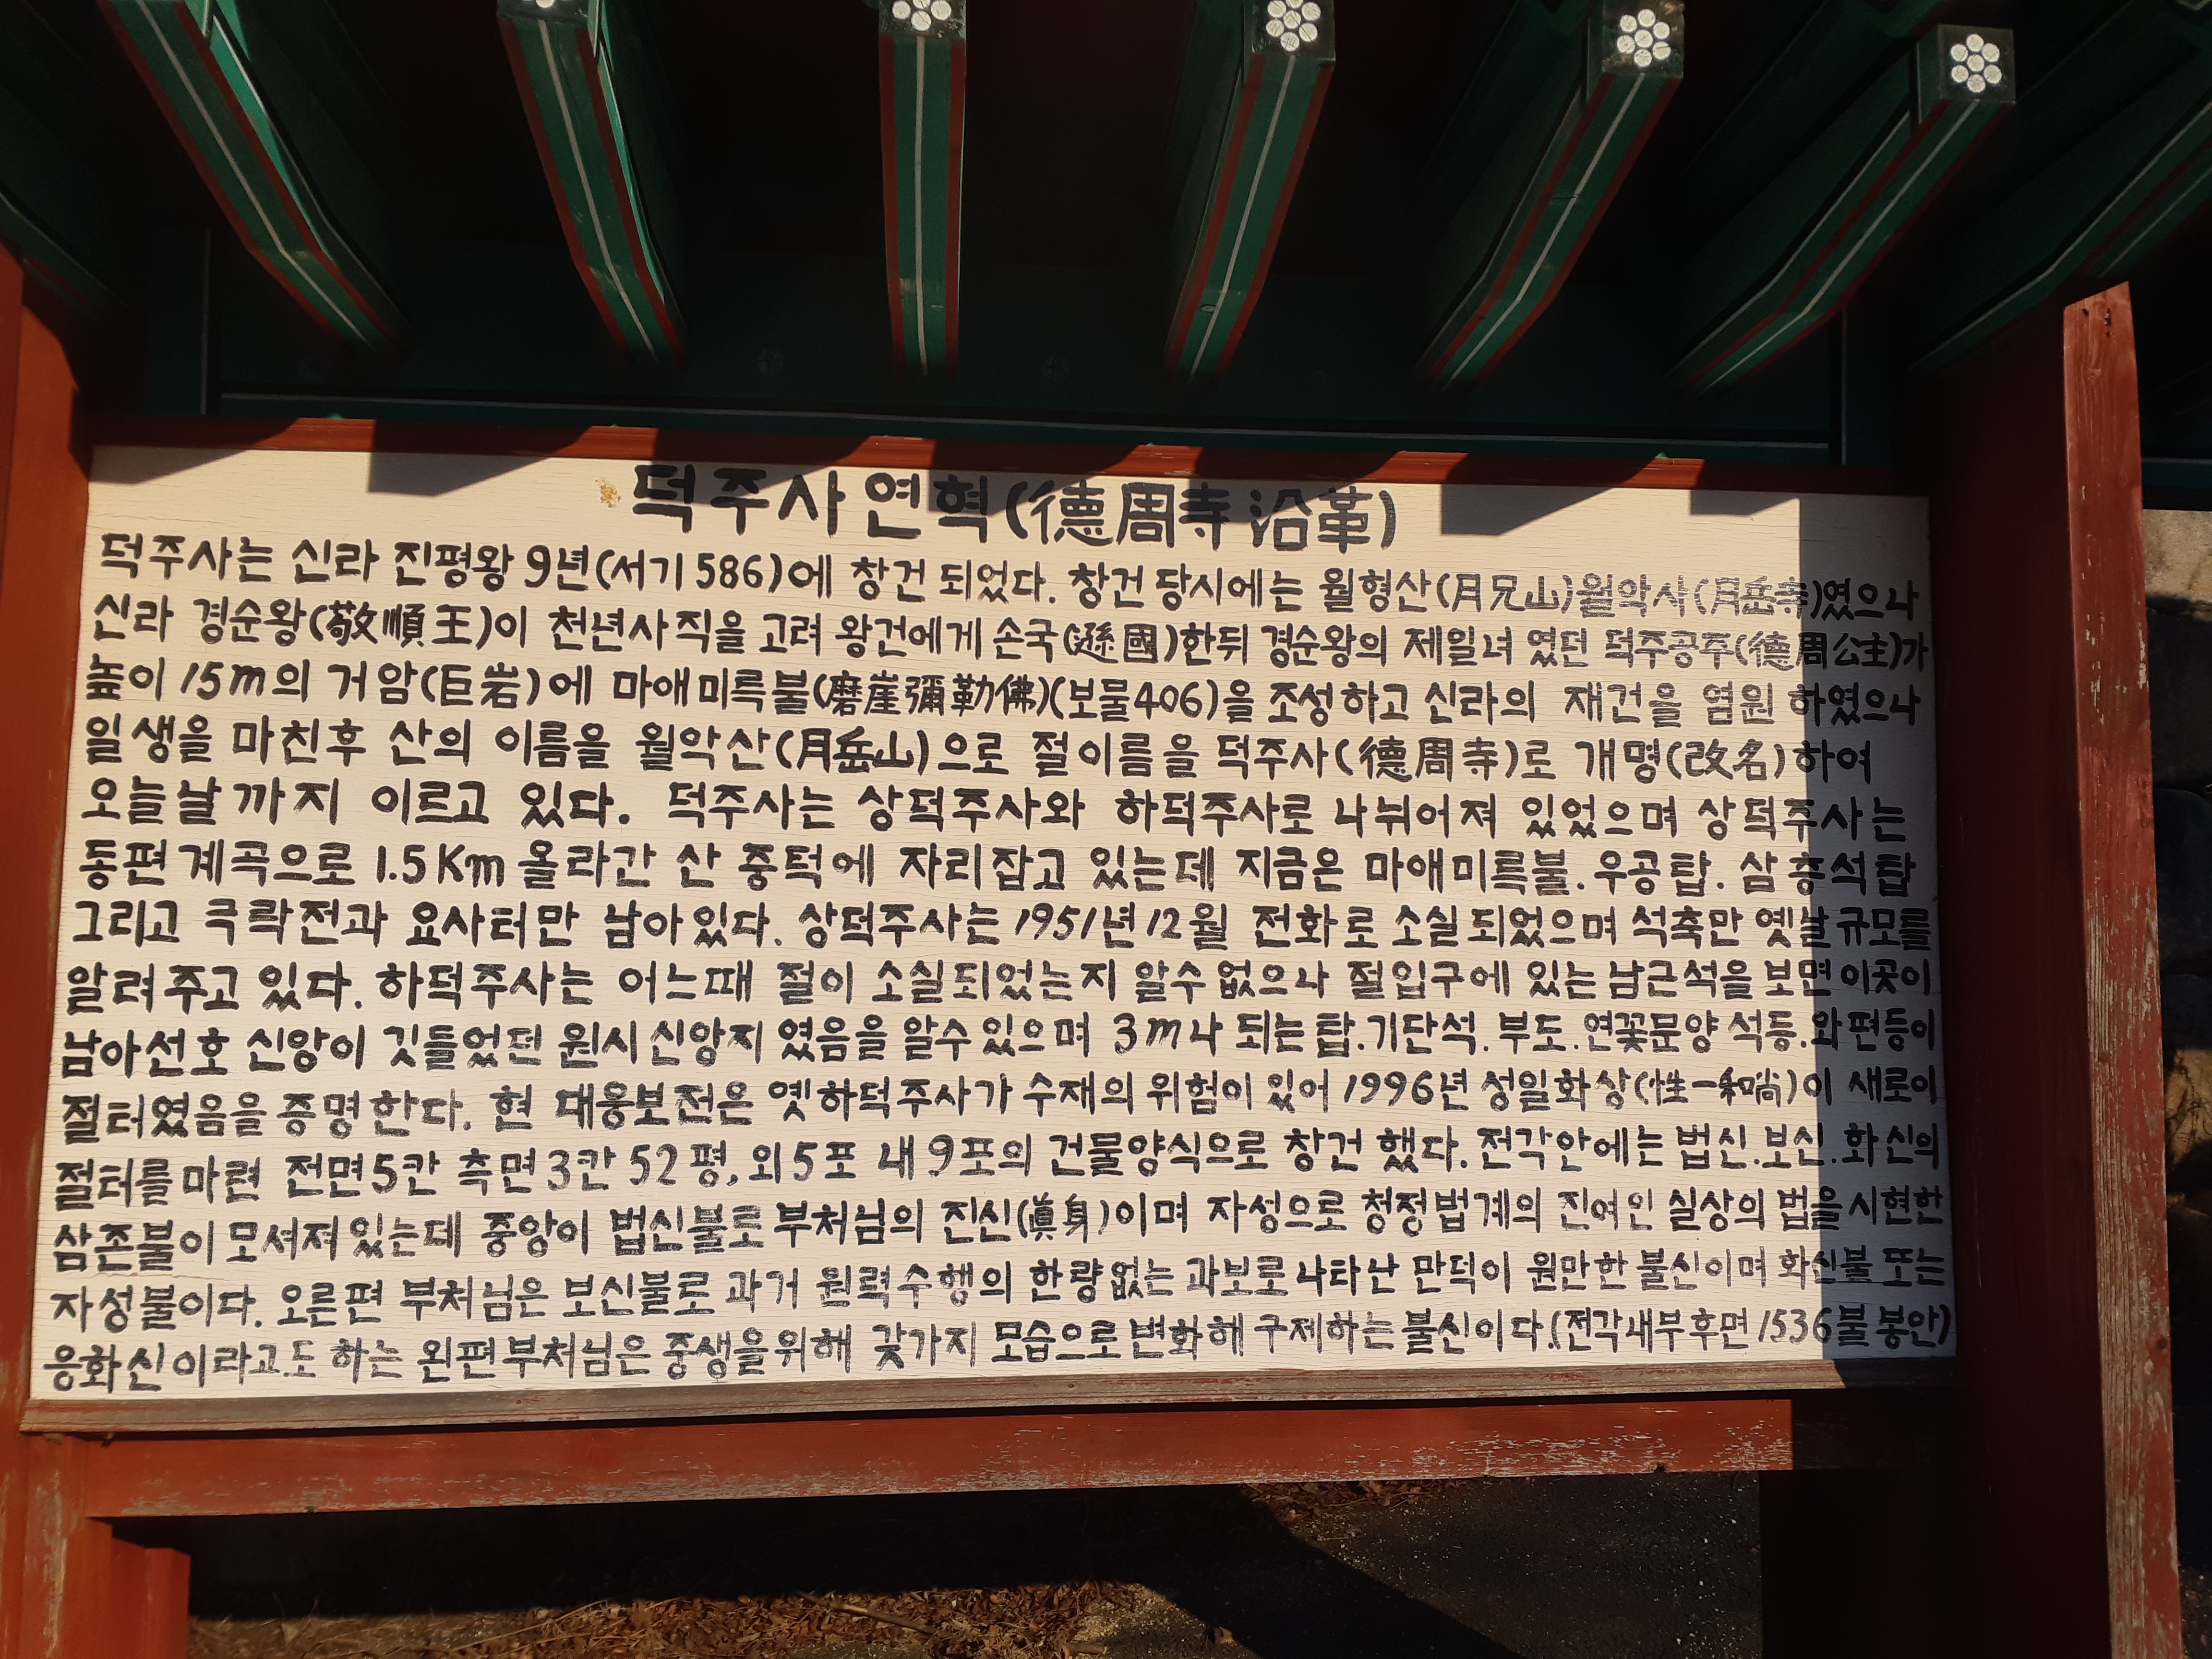 덕주사연혁(德周寺沿革)
덕주사는 신라 진평왕 9년(서기586)에 창건 되었다. 창건 당시에는 월형산(月兄山)월악사(月岳寺)였으나
신라 경순왕(敬順王)이 천년사직을 고려 왕건에게 손국(遜國)한뒤 경순왕의 제일녀 였던 덕주공주(德周公主)가
높이 15m의 거암(巨岩)에 마애미륵불(磨崖彌勒佛)(보물406)을 조성하고 신라의 재건을 염원 하였으나
일생을 마친후 산의 이름을 월악산(月岳山)으로 절이름을 덕주사(德周寺)로 개명(改名)하여
오늘날까지 이르고 있다. 덕주사는 상덕주사와 하덕주사로 나뉘어져 있었으며 상덕주사는
동편계곡으로 1.5Km 올라간 산 중턱에 자리잡고 있는데 지금은 마애미륵불.우공탑. 삼층석탑
그리고 극락전과 요사터만 남아있다. 상덕주사는 1951년 12월 전화로 소실되었으며 석축만 옛날 규모를
알려주고 있다. 하덕주사는 어느때 절이 소실되었는지 알수없으나 절입구에 있는 남근석을 보면 이곳이
남아선호 신앙이 깃들었던 원시신앙지 였음을 알수있으며 3m나 되는 탑.기단석.부도.연꽃문양 석등.와편등이
절터였음을 증명한다. 현 대웅보전은 옛하덕주사가 수재의 위험이 있어 1996년 성일화상(性一和尙)이 새로이
절터를 마련 전면5칸 측면3칸 52평, 외5포 내9포의 건물양식으로 창건 했다. 전각안에는 법신.보신.화신의
삼존불이 모셔져있는데 중앙이 법신불로 부처님의 진신(眞身)이며 자성으로 청정법계의 진여인 실상의 법을 시현한
자성불이다. 오른편 부처님은 보신불로 과거 원력수행의 한량없는 과보로 나타난 만덕이 원만한 불신이며 화신불 또는
응화신이라고도 하는 왼편부처님은 중생을위해 갖가지 모습으로변화해 구제하는 불신이다.(전각내부후면 1536불 봉안)